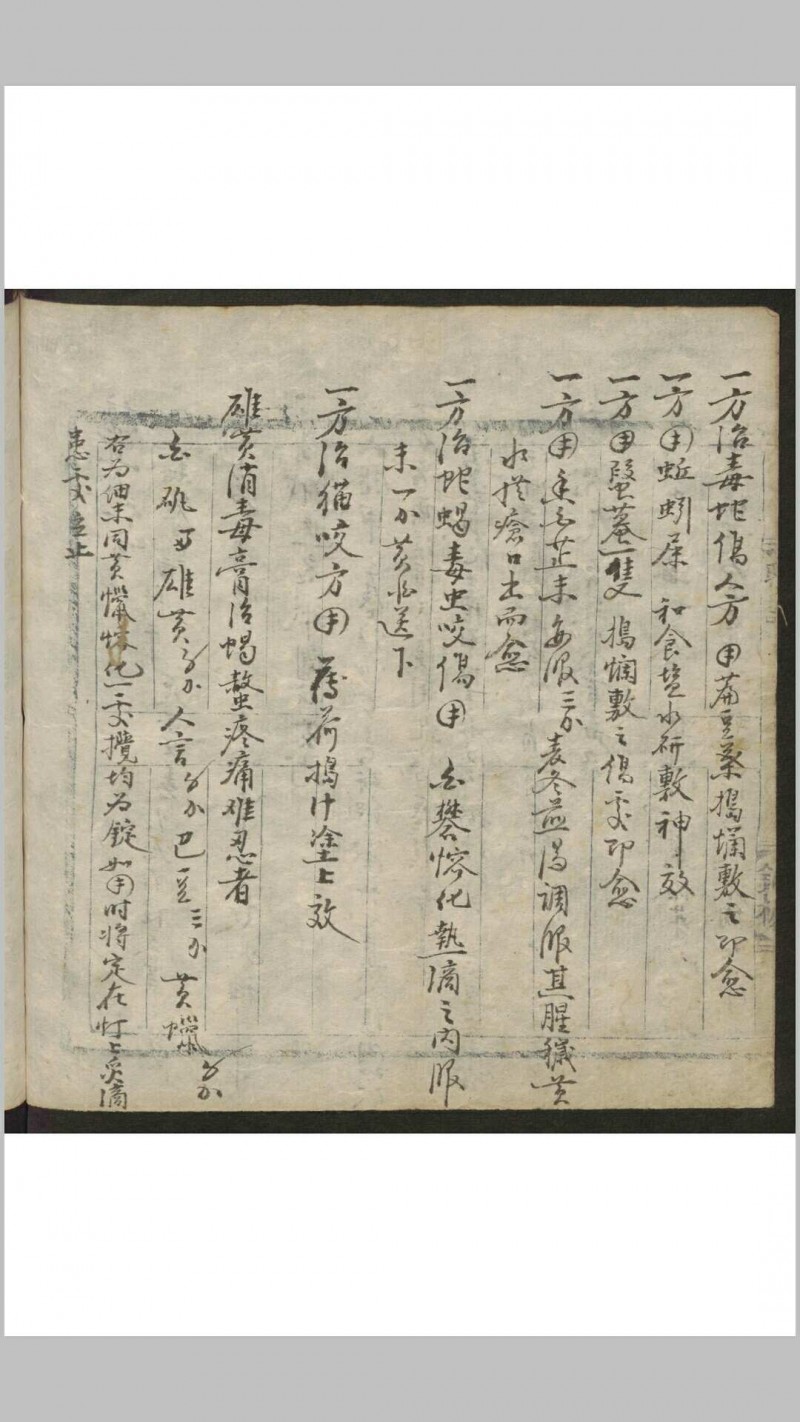 一方治毒蛇傷人方 用萹豆葉搗爛敷之即愈
一方用蚯蚓屎 和食塩水研敷神效
一方用 一隻 搗爛敷之傷处即愈
一方用 芷末每服三分麦冬 湯调服其腥穢黄
水從瘡口出而愈
一方治蛇蝎毒虫咬傷用 白礬熔化熱滴之内服
末一分黄 送下
一方治猫咬方用 薄荷搗汁塗上效
雄黄消毒膏治蝎螫疼痛难忍者
白矾 雄黄 人言 巴豆三分 黄蠟
右为细末同黄蠟 化一处攪均为錠如用时将定在灯上炙滴
患处立止